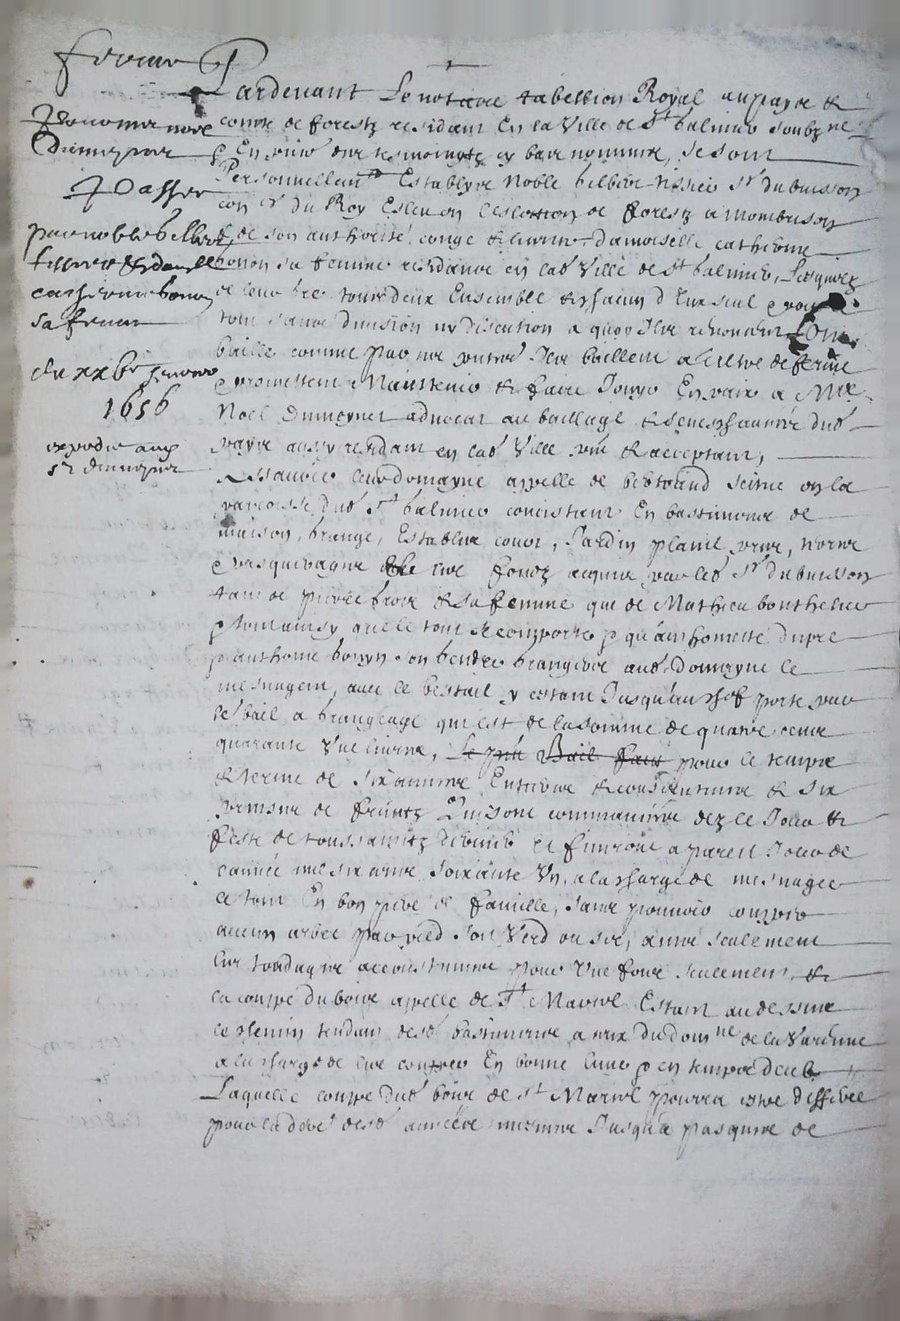 ferme
A Me noel
Dumeynet
passee
par noble b
tissier & dam.lle
catherine bonon
sa femme
du xxbe
1656
expedie au
sr dumeynet
Pardevant Le notaire tabellion Royal au pays &
comte de forestz residant En la Ville de St balmier soubz ne
En presence des tesmoingtz cy bas nommes, se sont
Personnellemt Establys Noble tissier sr du buisson
con er du Roy Esleu en Leslection de forestz a Montbrison
& de son authorite conge & licence damoiselle catherine
bonon sa femme residans en lad Ville de St balmier, Lesquelz
de leur gre tous deux Ensemble & chacun d Eux seul pour le
tout sans division ny discution a quoy Ilz renoncent
baille comme par ces presentes Ilz baillent a tiltre de ferme
promettent Maintenir & faire Jouyr En paix a Me
Noel Dumeynet advocat au baillage & senechaussee dud
pays aussy residant en lad Ville pnt & acceptant,
Assavoir leur domayne appelle de scitue en la
parroisse dud St balmier concistant En bastiments de
maison, grange, Establis court, Jardin prés, terres
pasquerages & les fondz acquis par led Sr du buisson
tant de & sa femme que de Mathieu bonthelier
& tout ainsy que le tout se comporte & qu'anthomette dupre
& anthoine bonyn son gendre grangiers aud Domayne le
mesnagent, avec le bestail y estant Jusqu'au chef porte par
le bail a grangeage qui est de la somme de quatre cens
quarante Une livres, Le pnt Bail faict pour le temps
& terme de six annees Entieres & consecutives & six
prinses de fruictz Qui sont commancees dez le Jour &
feste de toussainctz dernier et finiront a pareil Jour de
l'annee mil six cens soixante Un, a la charge de mesnager
le tout En bon pere de famille, sans pouvoir coupper
aucun arbre par pied soit Verd ou sec, ains seulement
les tondages accoustumes pour Une fois seulement, &
la couppe du bois appelle de St Marcel Estant au dessus
le chemin tendant desd bastiments a ceux du dom ne de la Varenne
a la charge de les coupper En bonne lune & en temps deub
Laquelle couppe dud bois de St Marcel pourra estre differee
pour la dre desd annees Jusqu'a pasques de